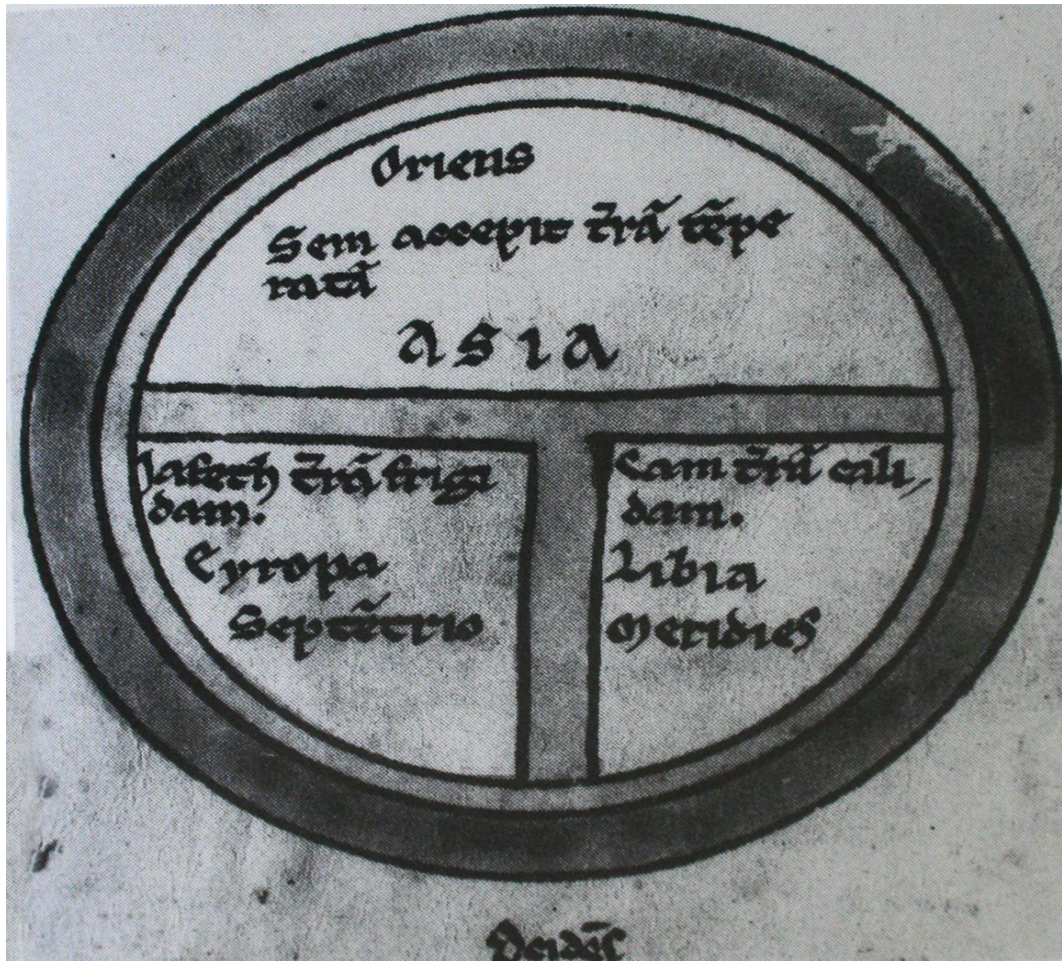 Oriens
Sem accepit t̄rā tēpe
ratā
ASIA
Jafeth t̄rā frigi
dam.
Eyropa
Septētrio
Cam t̄rā cali,
dam.
Libia
Meridies